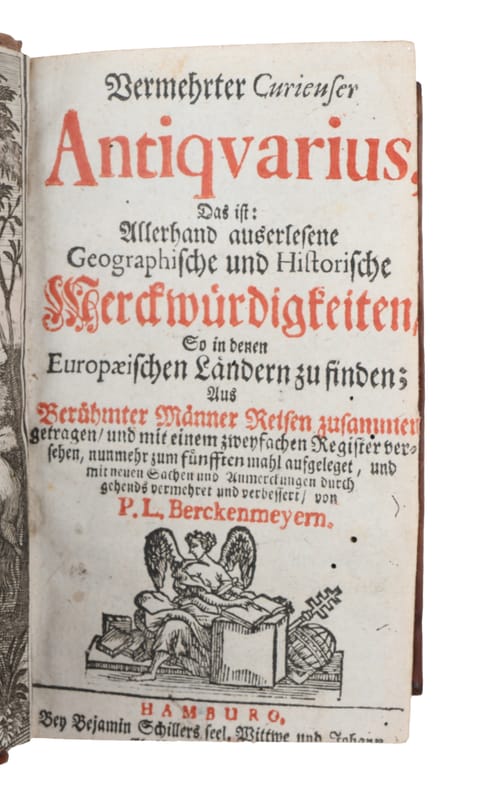 Vermehrter Curieuser
Antiqvarius,
Das ist:
Allerhand auserlesene
Geographische und Historische
Merckwürdigkeiten/
So in denen
Europæischen Ländern zu finden;
Aus
Berühmter Männer Reisen zusammen
getragen/ und mit einem zweyfachen Register ver-
sehen, nunmehr zum fünfften mahl aufgeleget, und
mit neuen Sachen und Anmerckungen durch
gehends vermehret und verbessert/ von
P. L. Berckenmeyern.
HAMBURG,
Bey Bejamin Schillers seel. Wittwe und Johann